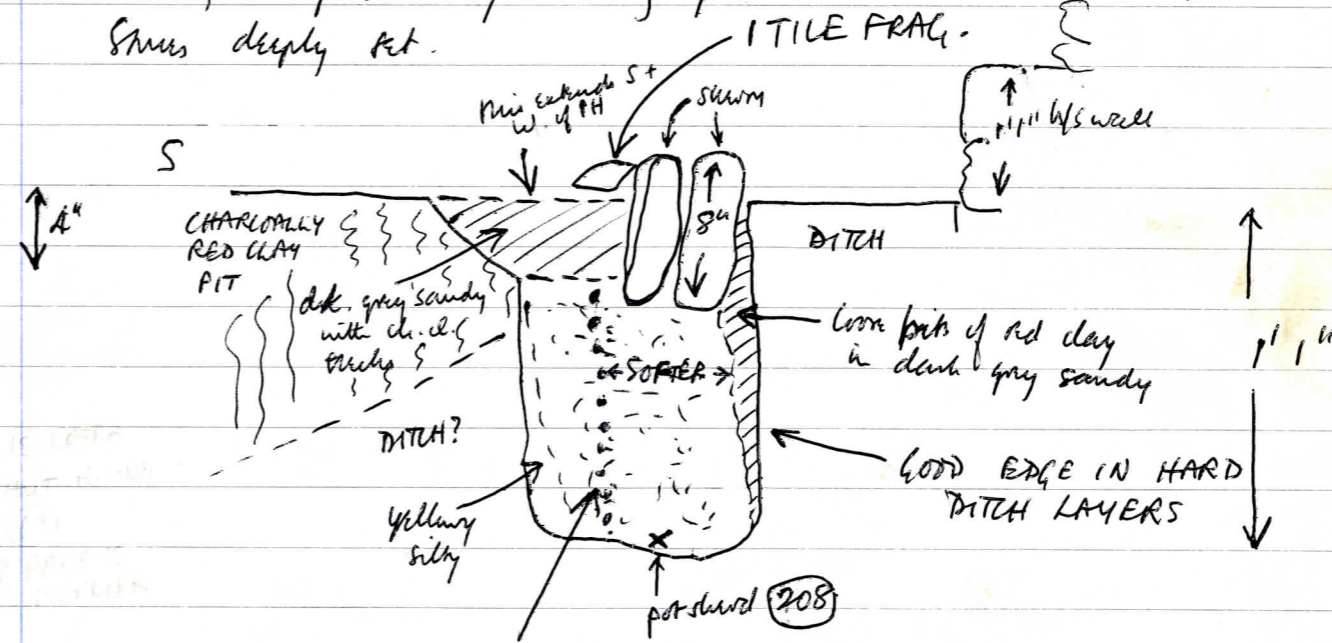 Stones deeply set.
1 TILE FRAG.
This extends S +
W. of PH
S
1'1" b/s wall
4"
CHARCOALLY
RED CLAY
PIT
8"
DITCH
dk. grey sandy
with ch.cl.
flecks
← SOFTER →
loose bits of red clay
in dark grey sandy
1' 1"
DITCH?
GOOD EDGE IN HARD
DITCH LAYERS
yellowy
silty
X
pot sherd 208